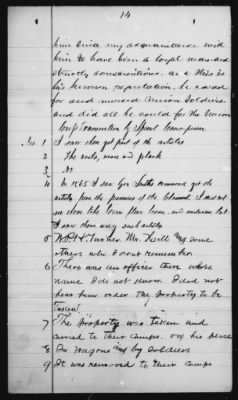 14
him since my acquaintance with
him to have been a loyal man and
strictly conscientious. as a this is
his known reputation. he cared
for and moved Union Soldiers
and did all he could for the Union
1 I saw them get part of the articles
2 the rails, corn and plank
3 No
4 In 1865 I saw Gov Smith's command get the
articles from the premises of the
saw them take corn from barn, and
I saw them carry such articles
5 W.P. H. Turner, Mr. and some
others who I dont remember
6 There was an officer there whose
name I do not know. I did not
hear him order the property to be
taken.
7 The property was taken and
carried to their camps. on his place
8 In wagons and by soldiers
9 It was removed to their camps